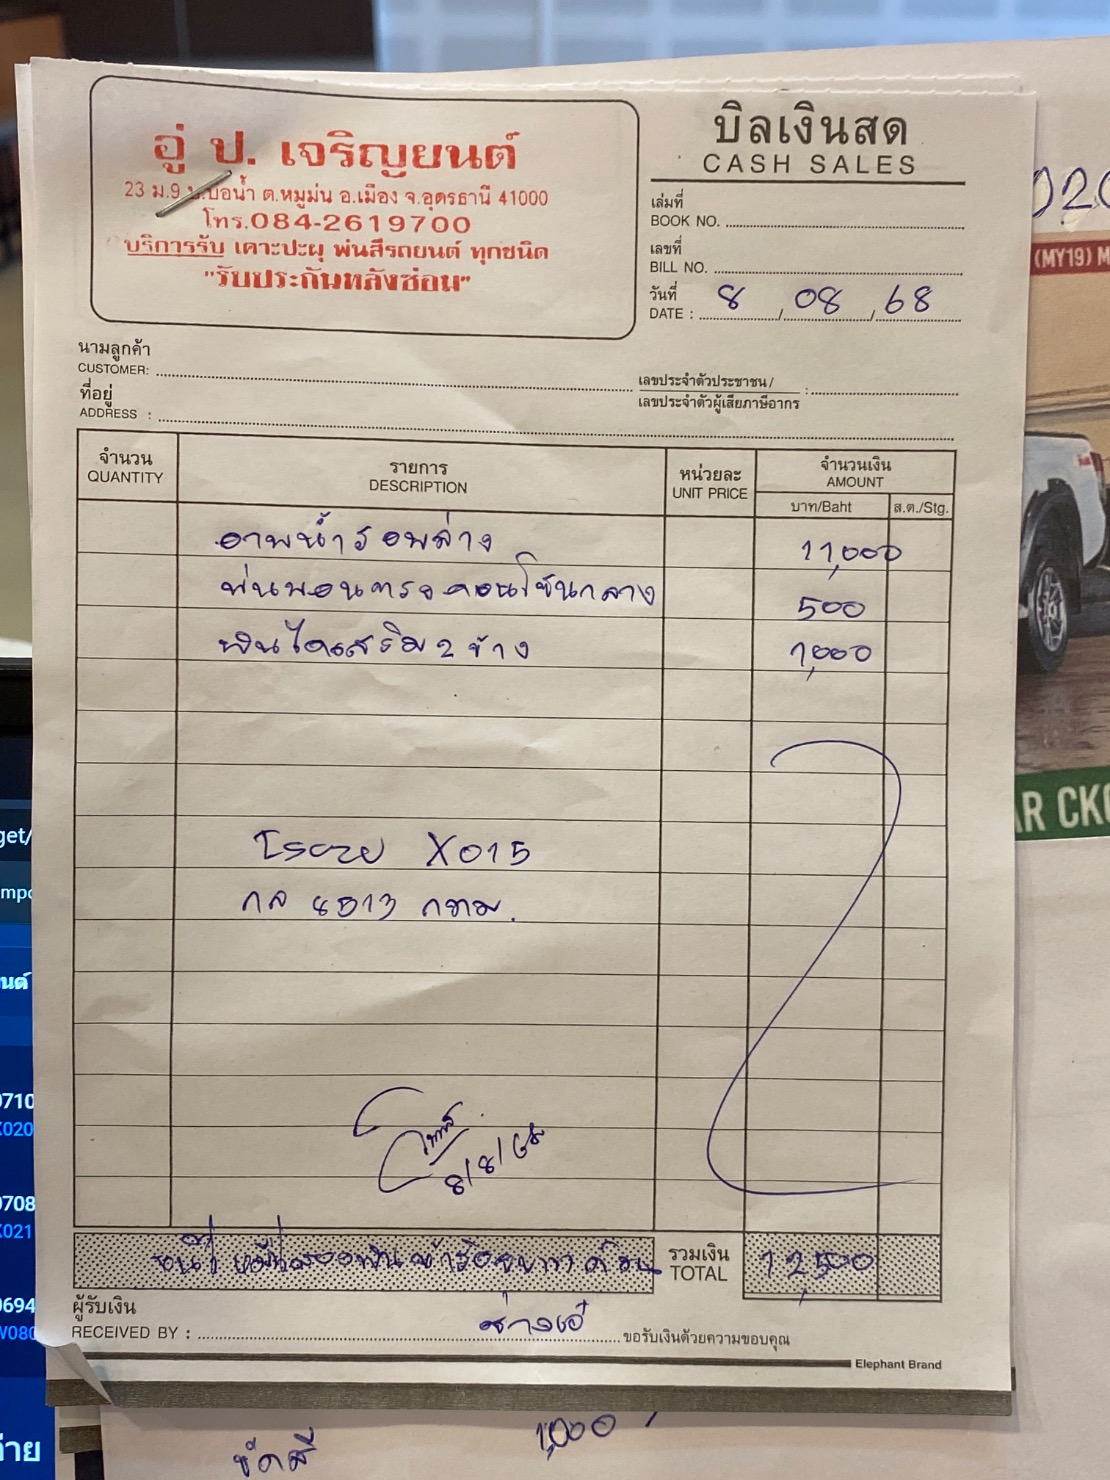 อู่ ป. เจริญยนต์
23 ม.9 บ.บ่อน้ำ ต.หมูม่น อ.เมือง จ.อุดรธานี 41000
โทร.084-2619700
บริการรับ เคาะปะผุ พ่นสีรถยนต์ ทุกชนิด
"รับประกันหลังซ่อม"
บิลเงินสด
CASH SALES
เล่มที่
BOOK NO.
เลขที่
BILL NO.
วันที่
DATE : 8 / 08 / 68
นามลูกค้า
CUSTOMER:
เลขประจำตัวประชาชน/ :
เลขประจำตัวผู้เสียภาษีอากร
ที่อยู่
ADDRESS :
จำนวน
QUANTITY
รายการ
DESCRIPTION
หน่วยละ
UNIT PRICE
จำนวนเงิน
AMOUNT
บาท/Baht
ส.ต./Stg.
อาบน้ำรอบล่าง 11,000
พ่นพอนทรอคอนโซนกลาง 500
พ่นไดเสริม 2 ข้าง 1,000
X015
กล 8013 กทม.
8/8/68
รวมเงิน
TOTAL 12,500
ผู้รับเงิน
RECEIVED BY : ช่างเอ๋ ขอรับเงินด้วยความขอบคุณ
Elephant Brand
ขัดสี 1,000
020
(MY19) M
AR CK
get/
mpo
นต์
0710
X020
0708
X021
0694
W080
จ่าย